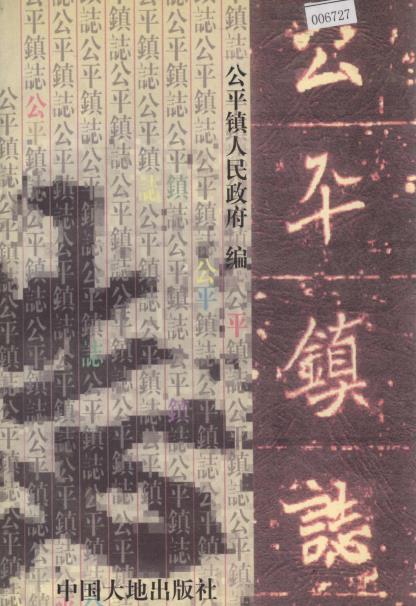 006727
公平镇人民政府 编
公平鎮誌
中国大地出版社